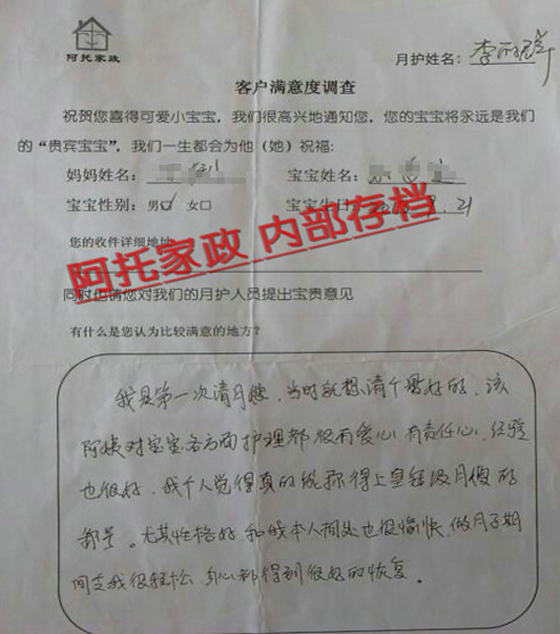 阿托家政
月护姓名：李丽群
客户满意度调查
祝贺您喜得可爱小宝宝，我们很高兴地通知您，您的宝宝将永远是我们
的“贵宾宝宝”，我们一生都会为他（她）祝福：
妈妈姓名： 宝宝姓名：
宝宝性别：男☑ 女□ 宝宝生日： 21
您的收件详细地址
阿托家政 内部存档
同时也请您对我们的月护人员提出宝贵意见
有什么是您认为比较满意的地方？
我是第一次请月嫂，当时就想请个最好的，该
阿姨对宝宝各方面护理都很有爱心，有责任心，经验
也很好，我个人觉得真的能称得上皇冠级月嫂的
称号。尤其性格好，和我本人相处也很愉快，做月子期
间变我很轻松，身心都得到很好的恢复。